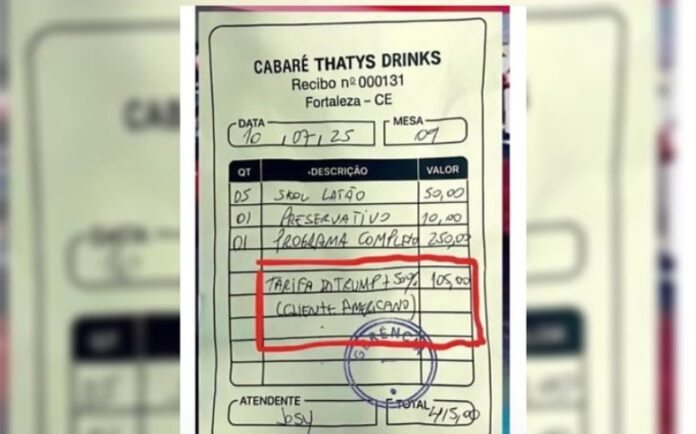 CABARÉ THATYS DRINKS
Recibo nº 000131
Fortaleza - CE
DATA
10 , 07 , 25
MESA
09
QT DESCRIÇÃO VALOR
05 SKOL LATÃO 50,00
01 PRESERVATIVO 10,00
01 PROGRAMA COMPLETO 250,00
TARIFA DO TRUMP + 50% 105,00
(CLIENTE AMERICANO)
GERÊNCIA
ATENDENTE
TOTAL
415,00